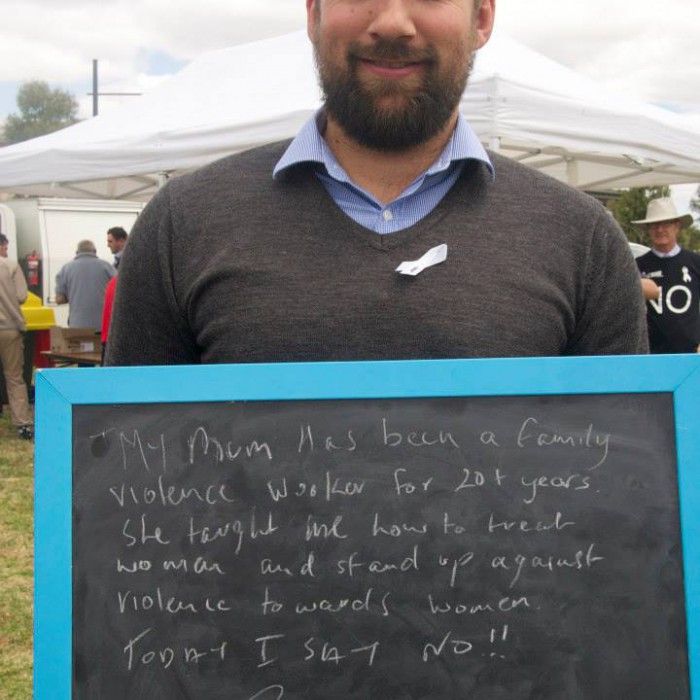 My Mum Has been a family
violence worker for 20+ years.
She taught me how to treat
woman and stand up against
violence towards women.
TODAY I SAY NO!!
NO